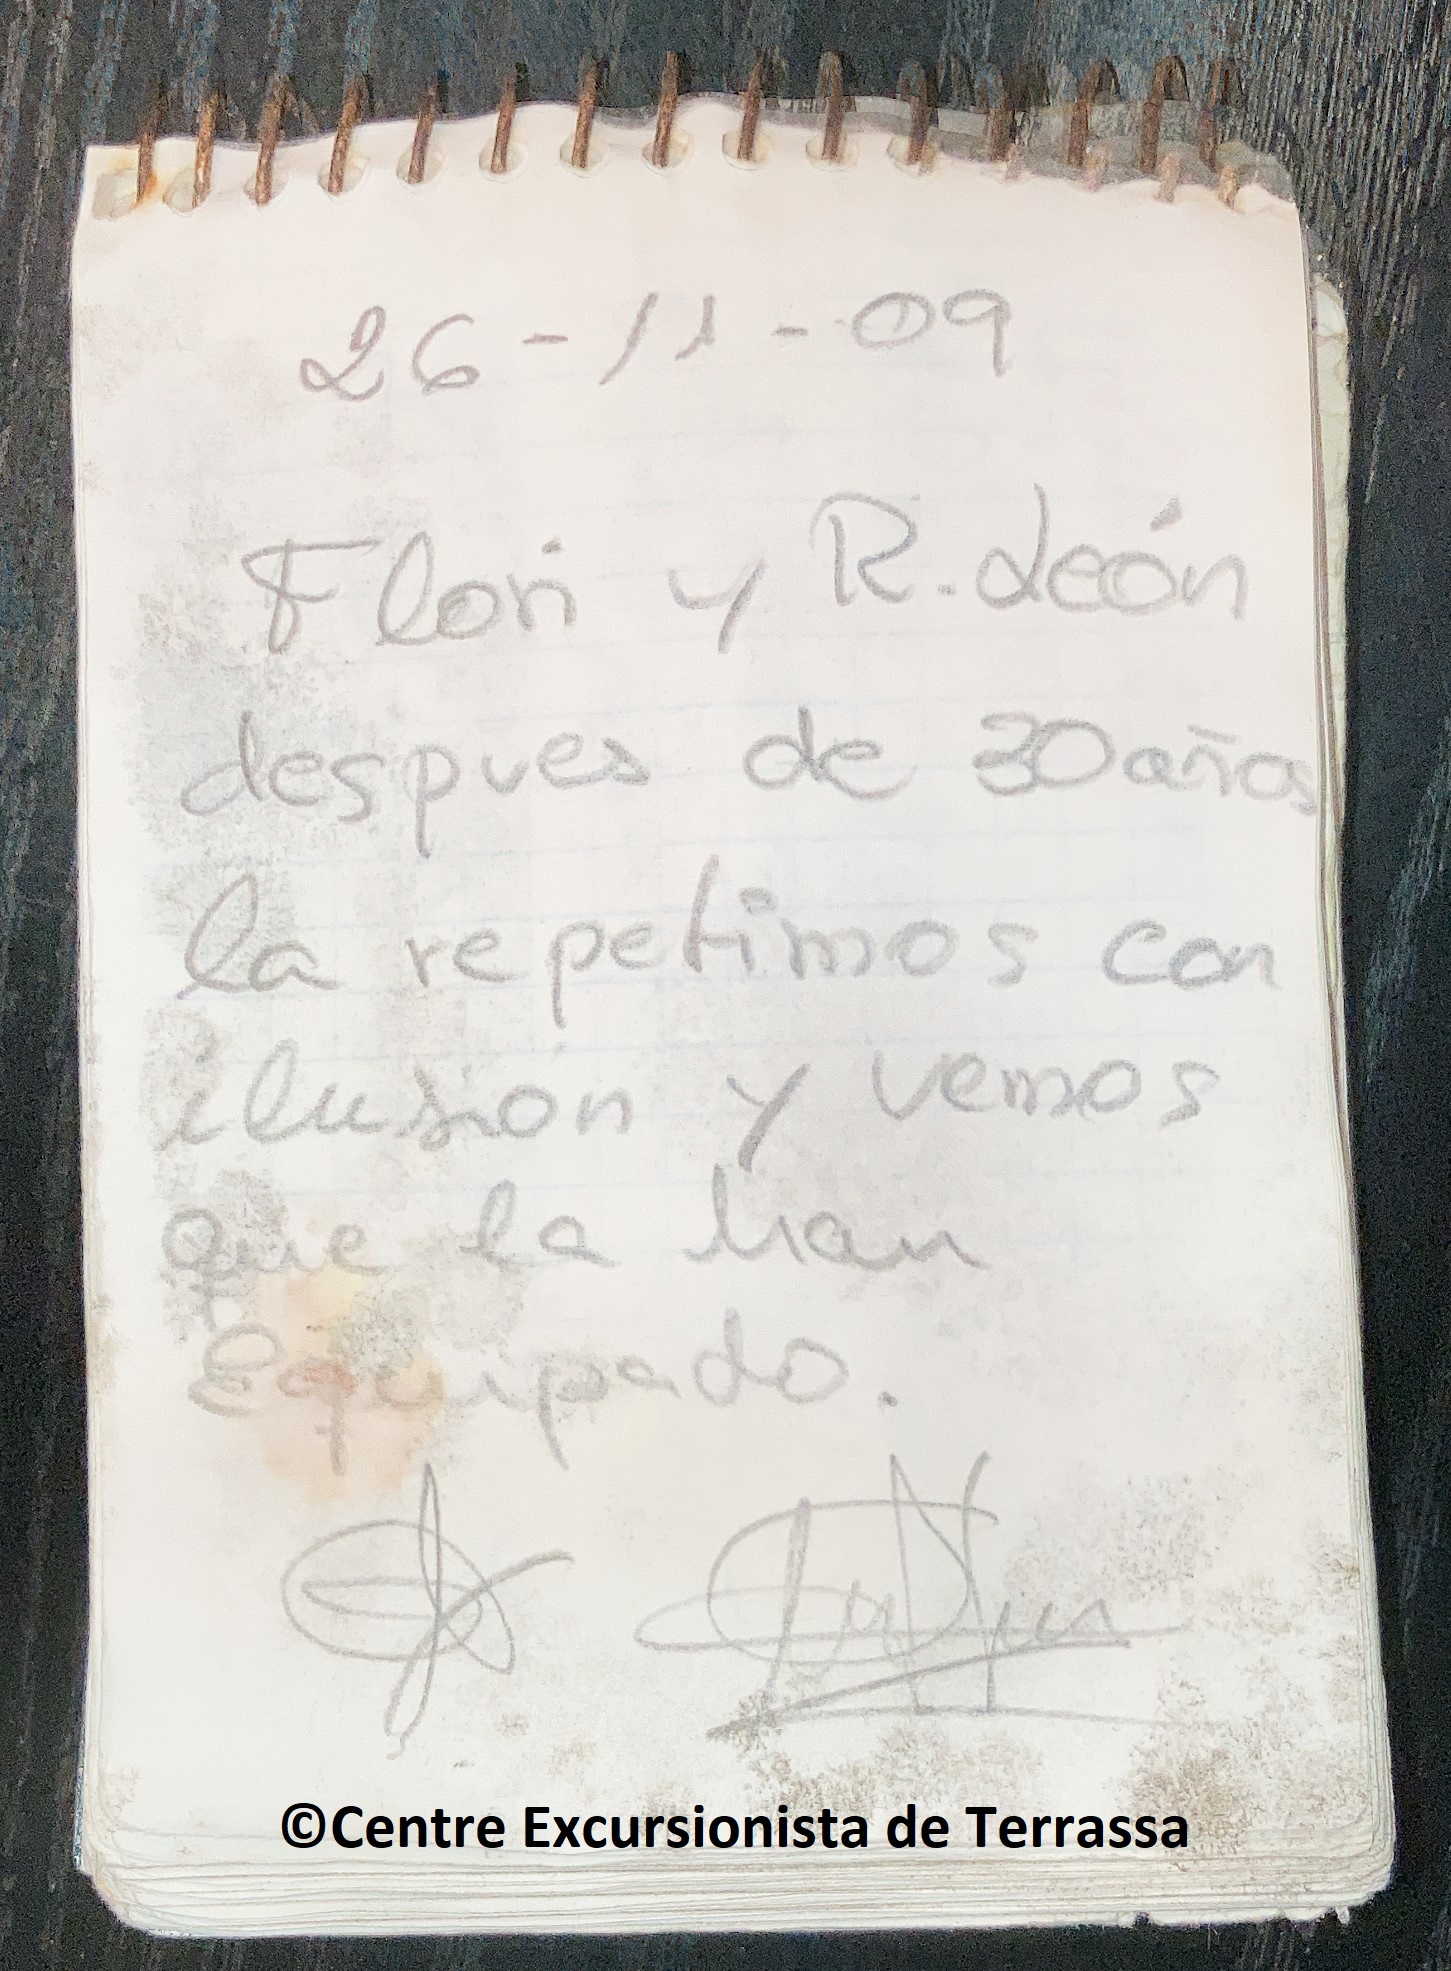 26-11-09
Flori y R. León
despues de 30 años
la repetimos con
ilusión y vemos
que la han
Equipado.
©Centre Excursionista de Terrassa